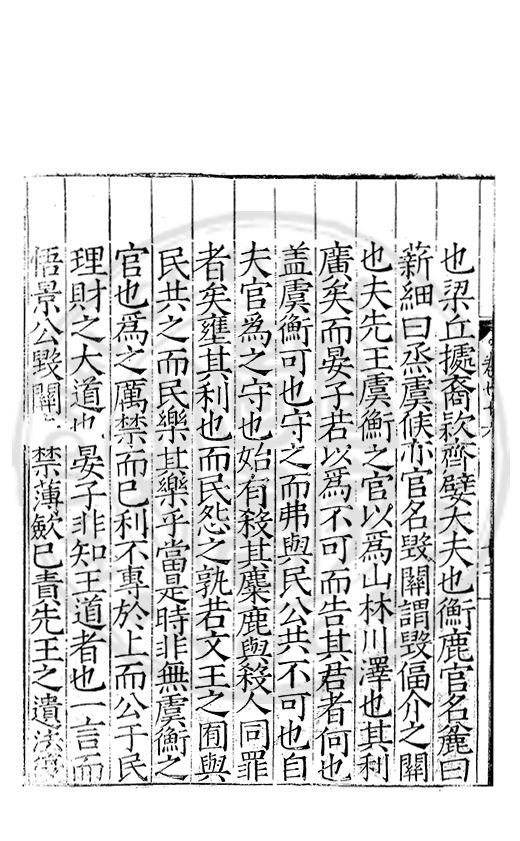 也梁丘㨿裔欵齊嬖大夫也衡鹿官名麄曰
薪細曰烝虞候亦官名毁關謂毁偪介之關
也夫先王虞衡之官以爲山林川澤也其利
廣矣而晏子若以爲不可而告其君者何也
盖虞衡可也守之而弗與民公共不可也自
夫官爲之守也始有殺其麋鹿與殺人同罪
者矣壅其利也而民怨之孰若文王之囿與
民共之而民樂其樂乎當是時非無虞衡之
官也爲之厲禁而已利不專於上而公于民
理財之大道也晏子非知王道者也一言而
悟景公毀關 禁薄歛已責先王之遺法